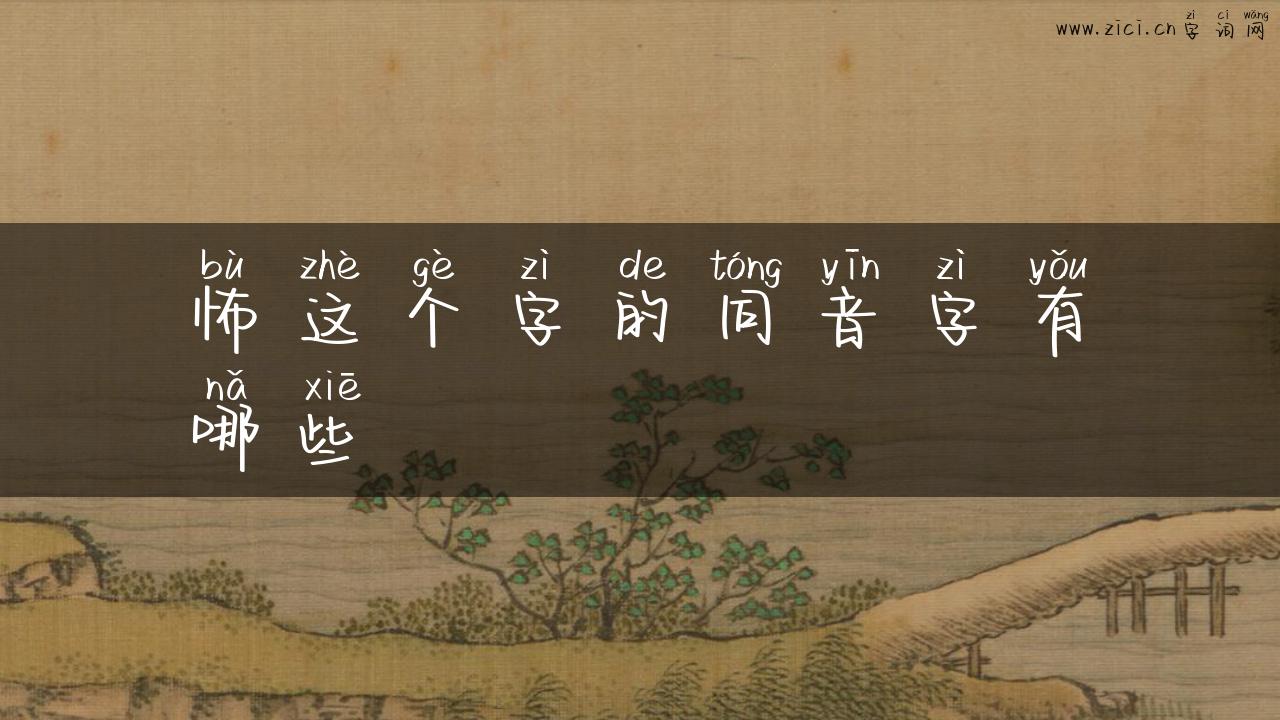 zì cí wǎng
www.zici.cn 字 词 网
bù zhè gè zì de tóng yīn zì yǒu
怖 这 个 字 的 同 音 字 有
nǎ xiē
哪 些